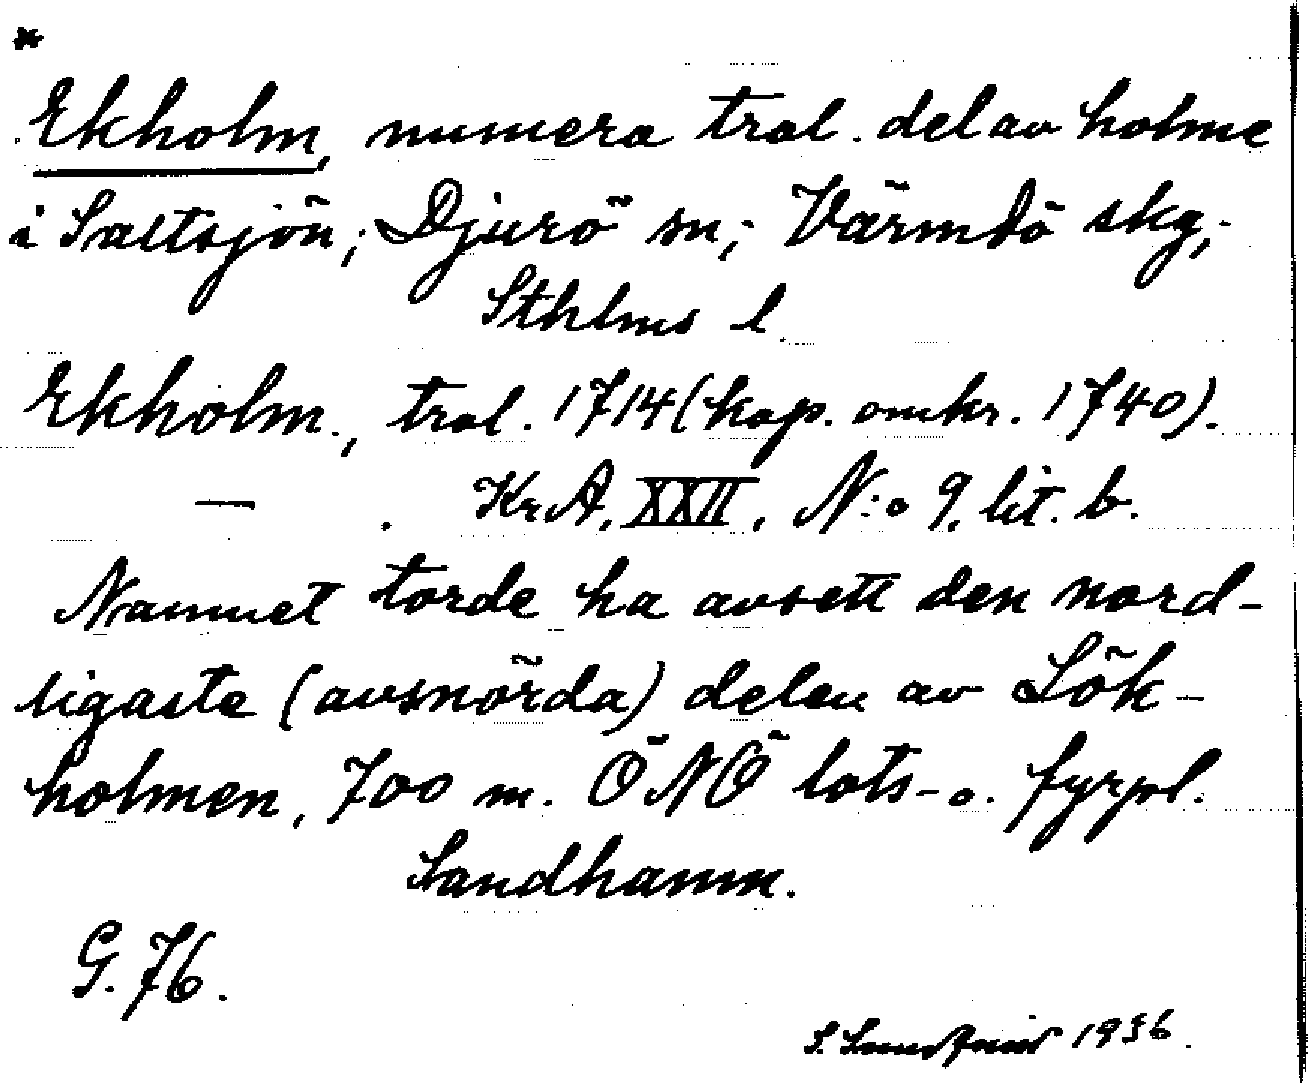 *
Ekholm, numera tral. del av holme
i Saltsjön; Djurö sn; Värmdö skg;
Sthlms l.
Ekholm., tral. 1714 (kop. omkr. 1740).
— . KrA, XXII, N:o 9, lit. b.
Namnet torde ha avsett den nord-
ligaste (avsnörda) delen av Lök-
holmen, 700 m. ÖNÖ lots- o. fyrpl.
Sandhamn.
G. 76.
S. 1936.